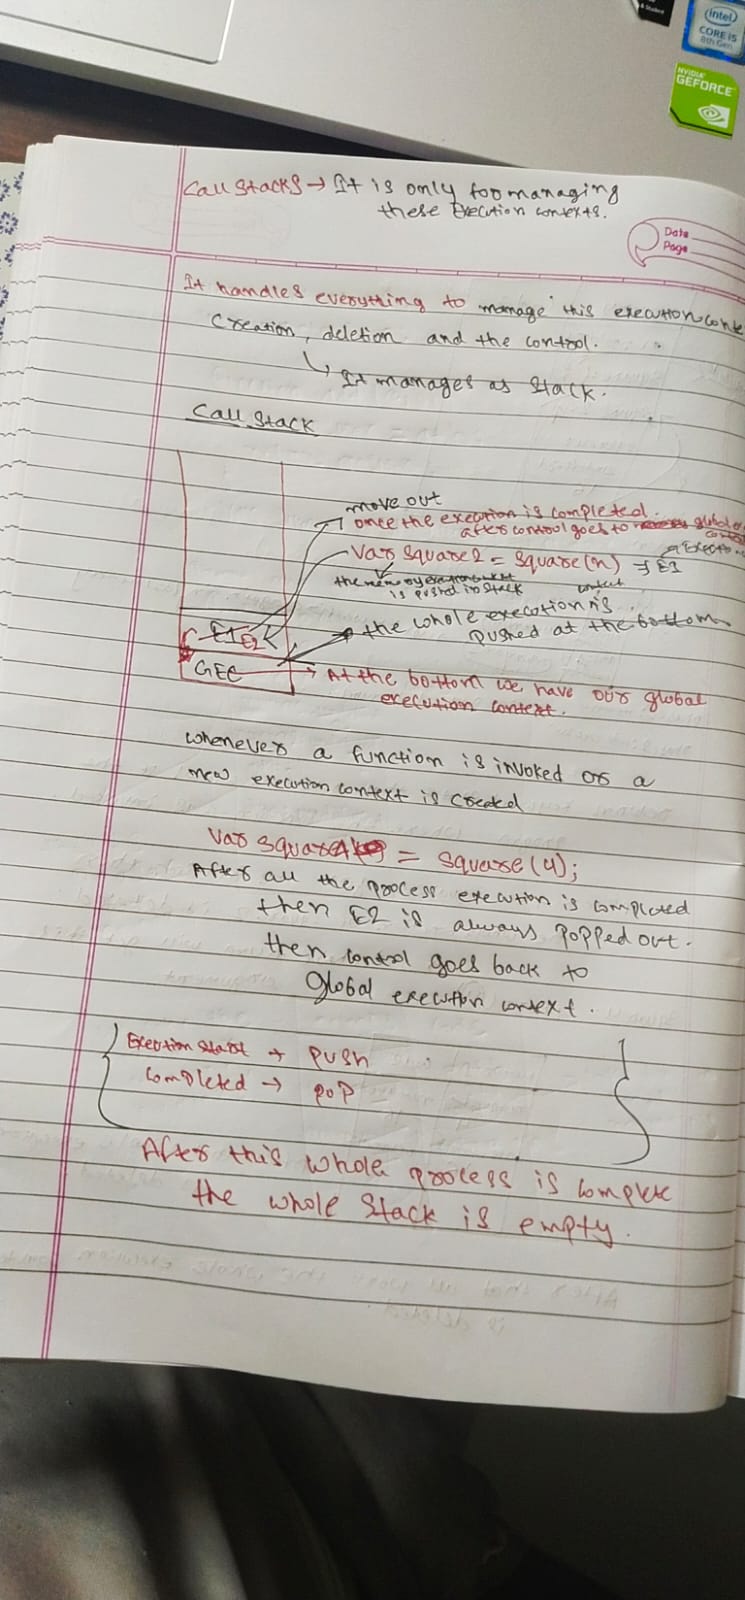 intel
CORE i5
8th Gen
NVIDIA
GEFORCE
Call Stacks → It is only foo managing
these Execution contexts.
Date
Page
It handles everything to manage this execution conte
Creation, deletion and the control.
↳ It manages as stack.
Call Stack
move out
once the execution is completed.
after control goes to global
Var square2 = square(n) → E1
is pushed in stack
the whole execution is
pushed at the bottom
E1 E2
GEC
→ At the bottom we have our global
execution context.
whenever a function is invoked or a
new execution context is created
Var square4 = square(4);
After all the process execution is completed
then E2 is always popped out.
then control goes back to
global execution context.
Execution start → push
Completed → pop
After this whole process is complete
the whole stack is empty.